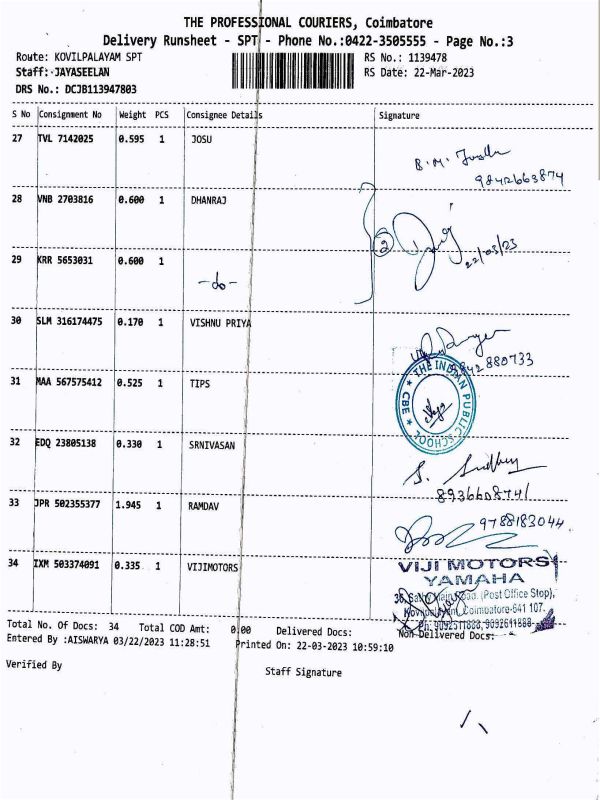 THE PROFESSIONAL COURIERS, Coimbatore
Delivery Runsheet - SPT - Phone No.:0422-3505555 - Page No.:3
Route: KOVILPALAYAM SPT RS No.: 1139478
Staff: JAYASEELAN RS Date: 22-Mar-2023
DRS No.: DCJB113947803
S No Consignment No Weight PCS Consignee Details Signature
27 TVL 7142025 0.595 1 JOSU
B.M.
9842663874
28 VNB 2703816 0.600 1 DHANRAJ
2
22/03/23
29 KRR 5653031 0.600 1
-do-
30 SLM 316174475 0.170 1 VISHNU PRIYA
9842880733
31 MAA 567575412 0.525 1 TIPS
THE INDIAN PUBLIC SCHOOL
CBE
32 EDQ 23805138 0.330 1 SRNIVASAN
S.
8936608741
33 JPR 502355377 1.945 1 RAMDAV
9788183044
34 IXM 503374091 0.335 1 VIJIMOTORS
VIJI MOTORS
YAMAHA
Main Road, (Post Office Stop),
Coimbatore-641 107.
Ph: 9092511888, 9092611888
Total No. Of Docs: 34 Total COD Amt: 0.00 Delivered Docs: Non Delivered Docs:
Entered By :AISWARYA 03/22/2023 11:28:51 Printed On: 22-03-2023 10:59:10
Verified By Staff Signature